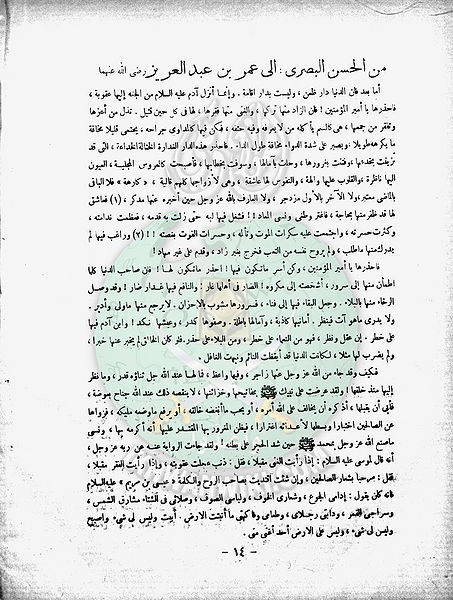 من الحسن البصرى : الى عمر بن عبد العزيز رضى الله عنهما
أما بعد فان الدنيا دار ظعن ، وليست بدار اقامة . وإنما أنزل آدم عليه السلام من الجنة إليها عقوبة ،
فاحذرها يا أمير المؤمنين ! فان الزاد منها تركها ، والغنى منها فقرها ، لها فى كل حين قتيل . تذل من أعزها
وتفقر من جمعها ، هى كالسم يأكله من لا يعرفه وفيه حتفه ، فكن فيها كالمداوى جراحه ، يحتمى قليلا مخافة
ما يكرهه طويلا ، ويصبر على شدة الدواء مخافة طول الداء . فاحذر هذه الدار الغدارة الختالة الخداعة ، التى قد
تزينت بخدعها ، وفتنت بغرورها ، وحلت بآمالها ، وسوفت بخطابها ، فأصبحت كالعروس المجلية ، العيون
إليها ناظرة ، والقلوب عليها والهة ، والنفوس لها عاشقة ، وهى لأزواجها كلهم قالية ، فلا الباقى
بالماضى معتبر ، ولا الآخر بالأول مزدجر ، ولا العارف بالله عز وجل حين أخبره عنها مدكر ، (١) فعاشق
لها قد ظفر منها بحاجة ، فاغتر وطغى ونسى المعاد !! فشغل فيها لبه حتى زلت به قدمه ، فعظمت ندامته ،
وكثرت حسرته ، واجتمعت عليه سكرات الموت وتألمه ، وحسرات الفوت بغصته !! (٢) وراغب فيها لم
يدرك منها ماطلب ، ولم يروح نفسه من التعب فخرج بغير زاد ، وقدم على غير مهاد !
فاحذرها يا أمير المؤمنين ، وكن أسر ماتكون فيها ! احذر ماتكون لها ! فان صاحب الدنيا كلما
اطمأن منها إلى سرور ، أشخصته إلى مكروه ! السار فى أهلها غار ، والنافع فيها غدار ضار ! وقد وصل
الرخاء منها بالبلاء . وجعل البقاء فيها إلى فناء ، فسرورها مشوب بالأحزان . لا يرجع منها ماولى وأدبر .
ولا يدرى ماهو آت فينتظر . أمانيها كاذبة ، وآمالها باطلة . وصفوها كدر ، وعيشها نكد ! وابن آدم فيها
على خطر . إن عقل ونظر ، فهو من النعماء على خطر ، ومن البلاء على حذر . فلو كان الخالق لم يخبر عنها خبرا ،
ولم يضرب لها مثلا ، لكانت الدنيا قد أيقظت النائم ونبهت الغافل .
فكيف وقد جاء من الله عز وجل عنها زاجر ، وفيها واعظ ، فما لها عند الله جل ثناؤه قدر ، وما نظر
إليها منذ خلقها ! ولقد عرضت على نبيك ﷺ بمفاتيحها وخزائنها ، لا ينقصه ذلك عند الله جناح بعوضة ،
فأبى أن يقبلها ، إذ كره أن يخالف على الله أمره ، أو يحب ما أبغضه خالقه ، أو يرفع ماوضعه مليكه ، فزواها
عن الصالحين اختبارا ، وبسطها لأعدائه اغترارا ، فيظن المغرور بها المقتدر عليها أنه أكرمه بها ، ونسى
ماصنع الله عز وجل بمحمد ﷺ حين شد الحجر على بطنه ! ولقد جاءت الرواية عنه عن ربه عز وجل ،
أنه قال لموسى عليه السلام : إذا رأيت الغنى مقبلا ، فقل : ذنب عجلت عقوبته ، وإذا رأيت الفقر مقبلا ،
فقل : مرحبا بشعار الصالحين ، وإن شئت اقتديت بصاحب الروح والكلمة « عيسى بن مريم » عليه السلام
فانه كان يقول : إدامى الجوع ، وشعارى الخوف ، ولباسى الصوف ، وصلائى فى الشتاء مشارق الشمس ،
وسراجى القمر ، ودابتى رجلاى ، وطعامى وفاكهتى ما أنبتت الأرض . أبيت وليس لى شىء وأصبح
وليس لى شىء ، وليس على الأرض أحد أغنى منى .
- ١٤ -